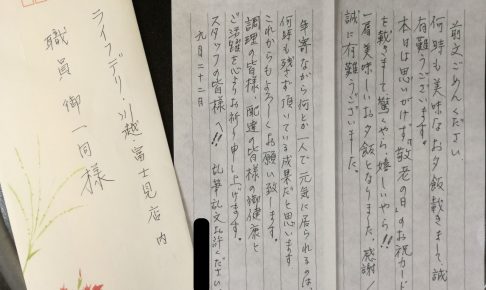 ライフデリ川越・富士見店内
職員御一同様
前文ごめんください。
何時も美味なお夕飯戴きまして、誠に
有難うございます。
本日は思いがけず「敬老の日」のお祝カード
を戴きまして驚くやら嬉しいやら!!
一層美味しいお夕飯となりました。感謝!
誠に有難うございました。
年寄ながら何とか一人で元気に居られるのは、
何時も残さず頂いている成果だと思います
これからもよろしくお願い致します。
調理の皆様、配達の皆様の御健康と
ご活躍を心よりお祈り申し上げます。
スタッフの皆様!! 乱筆乱文お許しください
九月二十二日